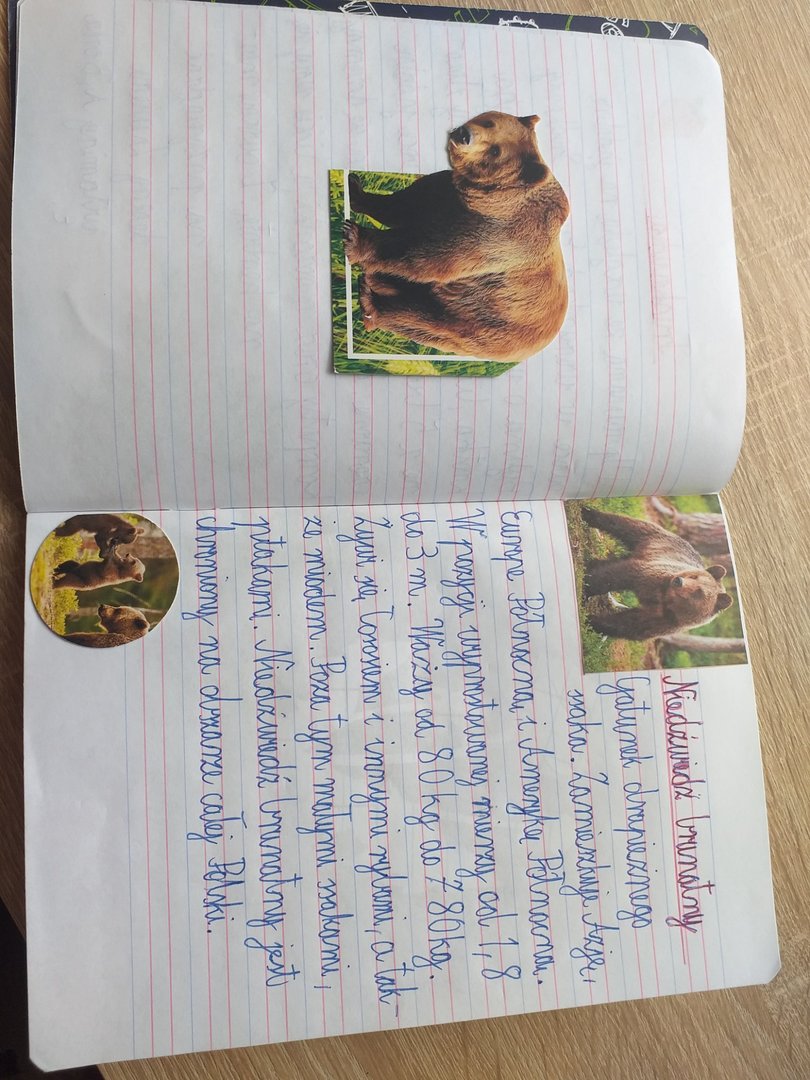 Niedźwiedź brunatny
Gatunek drapieżnego
ssaka. Zamieszkuje Azję,
Europę Północną i Amerykę Północną.
W pozycji wyprostowanej mierzy od 1,8
do 3 m. Waży od 80 kg do 780 kg.
Żywi się łososiem i innymi rybami, a tak-
że miodem. Poza tym małymi ssakami,
ptakami. Niedźwiedź brunatny jest
chroniony na obszarze całej Polski.